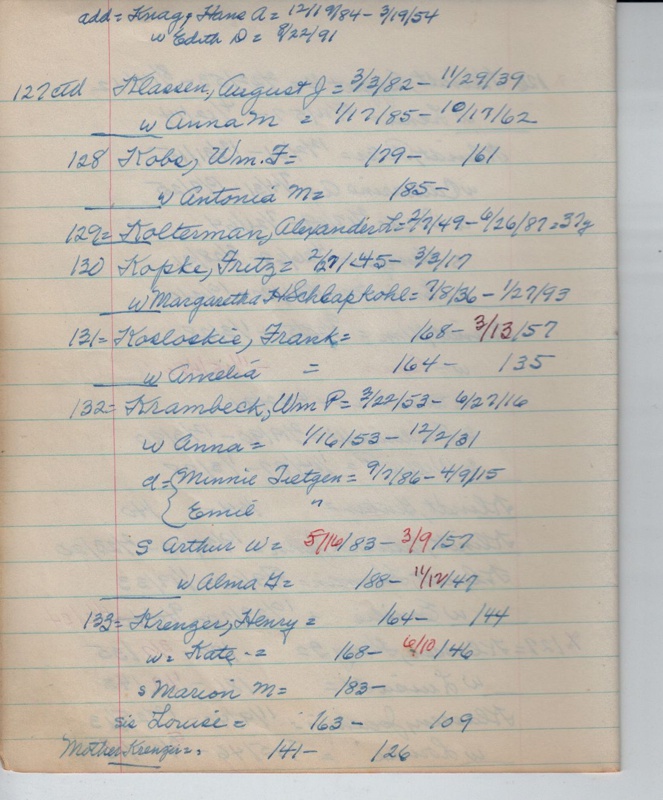 add = Knagg Hans A = 12/19/84 - 3/19/54
w Edith D = 8/22/91
127 ctd Klassen, August J = 3/3/82 - 11/29/39
w Anna M = 1/17/85 - 10/17/62
128 Kobs, Wm. F = /79 - /61
w Antonia M = /85 -
129 = Kolterman, Alexander L = 2/7/49 - 6/26/87 = 37y
130 Kopke, Fritz = 2/27/45 - 3/3/17
w Margaretha H Schlapkohl = 7/8/36 - 1/27/93
131 = Kosloskie, Frank = /68 - 3/13/57
w Amelia = /64 - /35
132 = Krambeck, Wm P = 3/22/53 - 6/27/16
w Anna = 1/16/53 - 12/2/31
d = { Minnie Tietgen = 9/7/86 - 4/9/15
Emil "
s Arthur W = 5/16/83 - 3/9/57
w Alma G = /88 - 11/12/47
133 = Krenger, Henry = /64 - /44
w = Kate = /68 - 6/10/46
s Marion M = /83 -
sis Louise = /63 - /09
Mother Krenger = /41 - /26